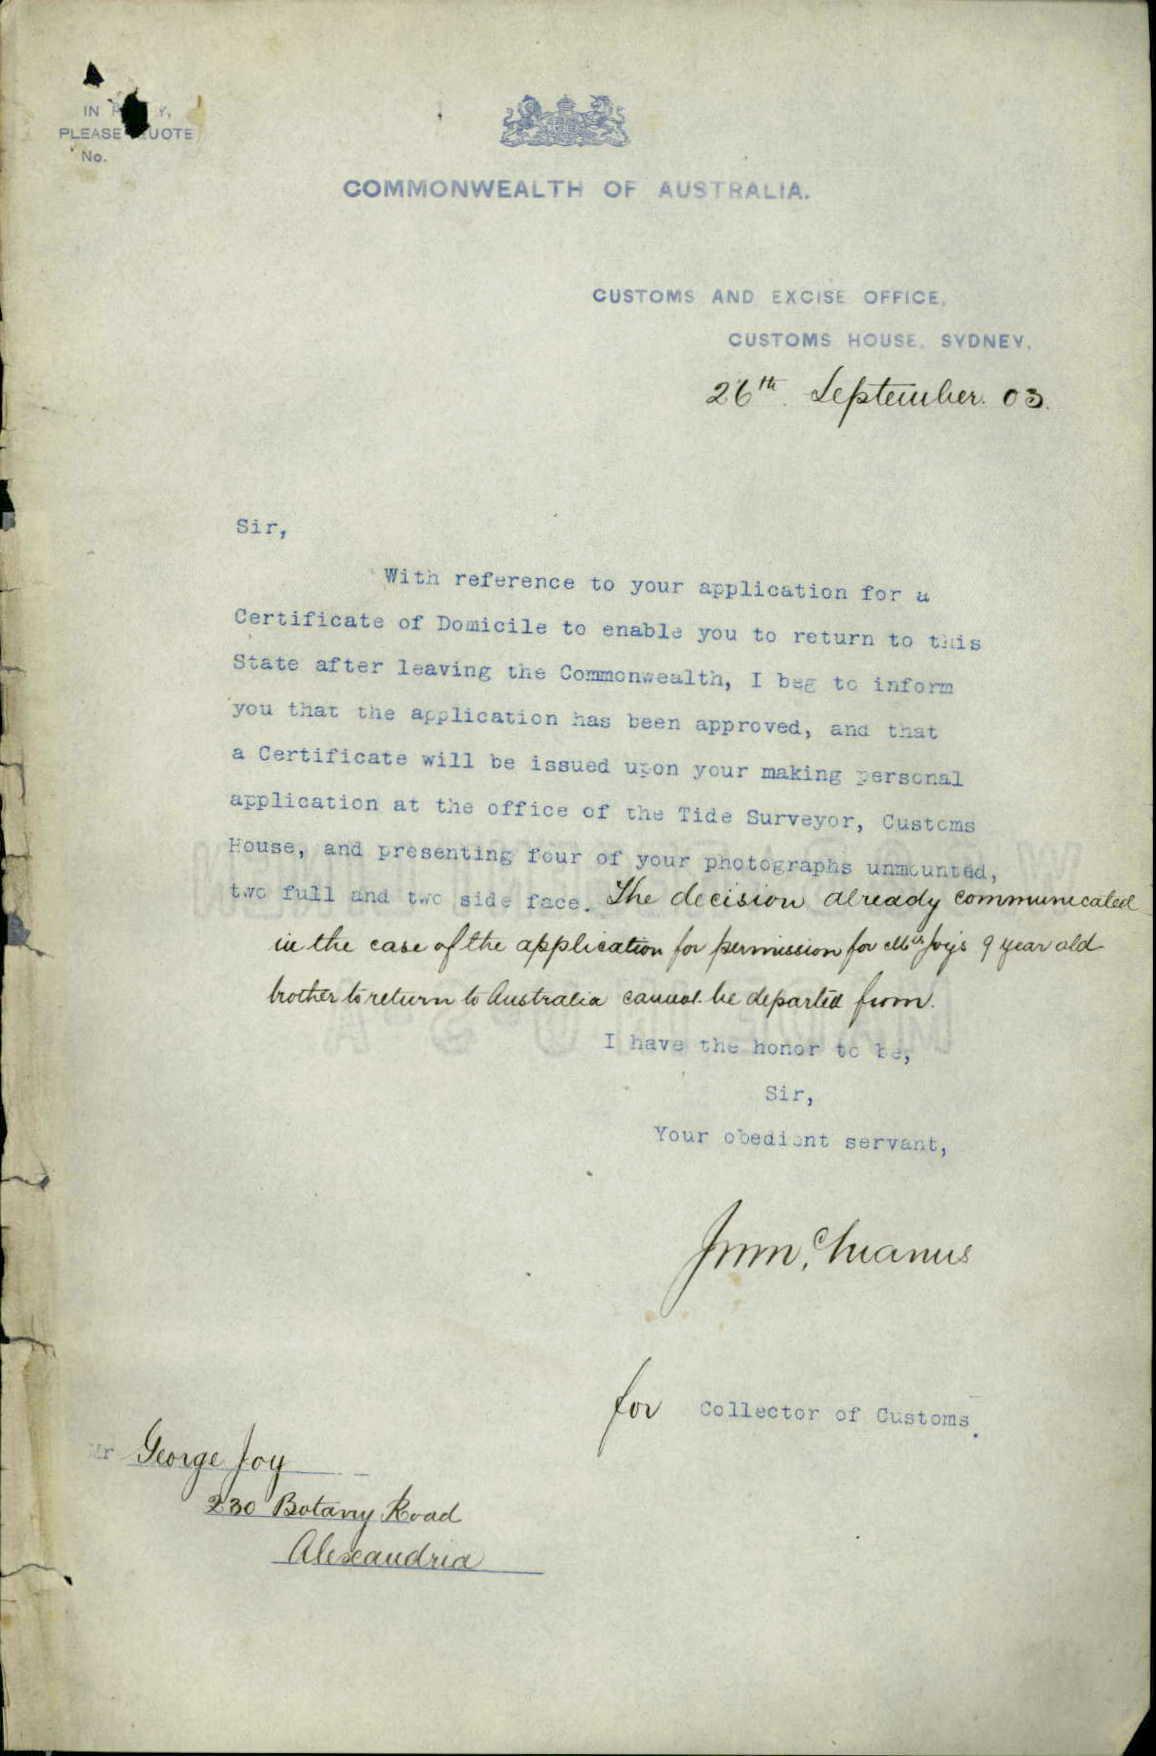 IN
PLEASE QUOTE
No.
COMMONWEALTH OF AUSTRALIA.
CUSTOMS AND EXCISE OFFICE,
CUSTOMS HOUSE, SYDNEY.
26th. September. 03.
Sir,
With reference to your application for a
Certificate of Domicile to enable you to return to this
State after leaving the Commonwealth, I beg to inform
you that the application has been approved, and that
a Certificate will be issued upon your making personal
application at the office of the Tide Surveyor, Customs
House, and presenting four of your photographs unmounted,
two full and two side face. The decision already communicated
in the case of the application for permission for Mrs Joy's 9 year old
brother to return to Australia cannot be departed from.
I have the honor to be,
Sir,
Your obedient servant,
for Collector of Customs.
Mr George Joy
230 Botany Road
Alexandria